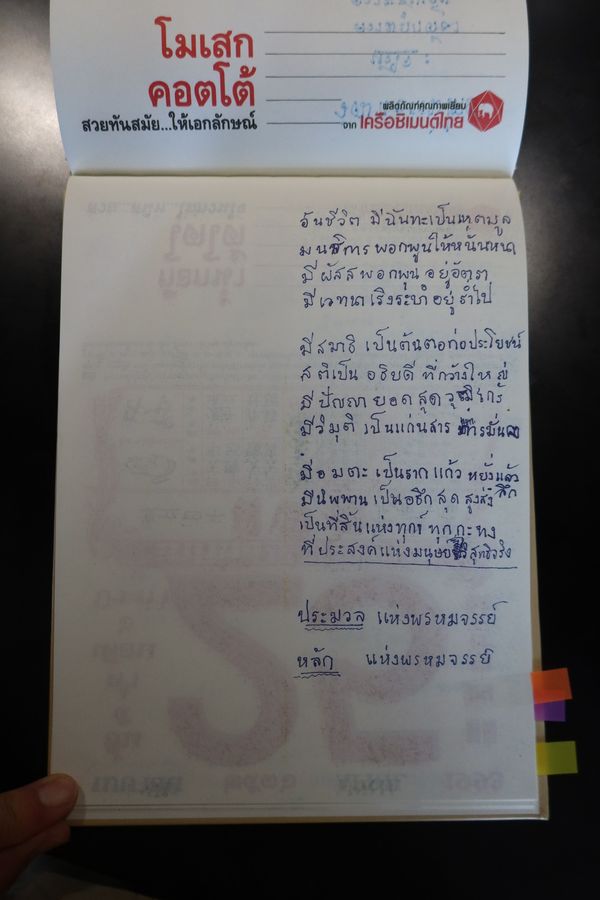 โมเสก
คอตโต้
สวยทันสมัย...ให้เอกลักษณ์
ผลิตภัณฑ์คุณภาพเยี่ยม
จาก เครือซิเมนต์ไทย
อันชีวิต มีฉันทะเป็นเหตุมูล
มนสิการ พอกพูนให้หนั่นหนา
มีผัสส พอกพูน อยู่อัตรา
มีเวทนา เริงระบำ อยู่ร่ำไป
มีสมาธิ เป็นต้นตอก่อประโยชน์
สติเป็น อธิบดี ที่กว้างใหญ่
มีปัญญา ยอดสุด
มีวิมุติ เป็นแก่นสาร การมั่นคง
มีอมตะ เป็นรากแก้ว หยั่งแล้ว ลึก
มีนิพพาน เป็นอธึก สุด สูงส่ง
เป็นที่สิ้นแห่งทุกข์ ทุกกะทง
ที่ประสงค์แห่งมนุษย์ สุทธิจริง
ประมวล แห่งพรหมจรรย์
หลัก แห่งพรหมจรรย์